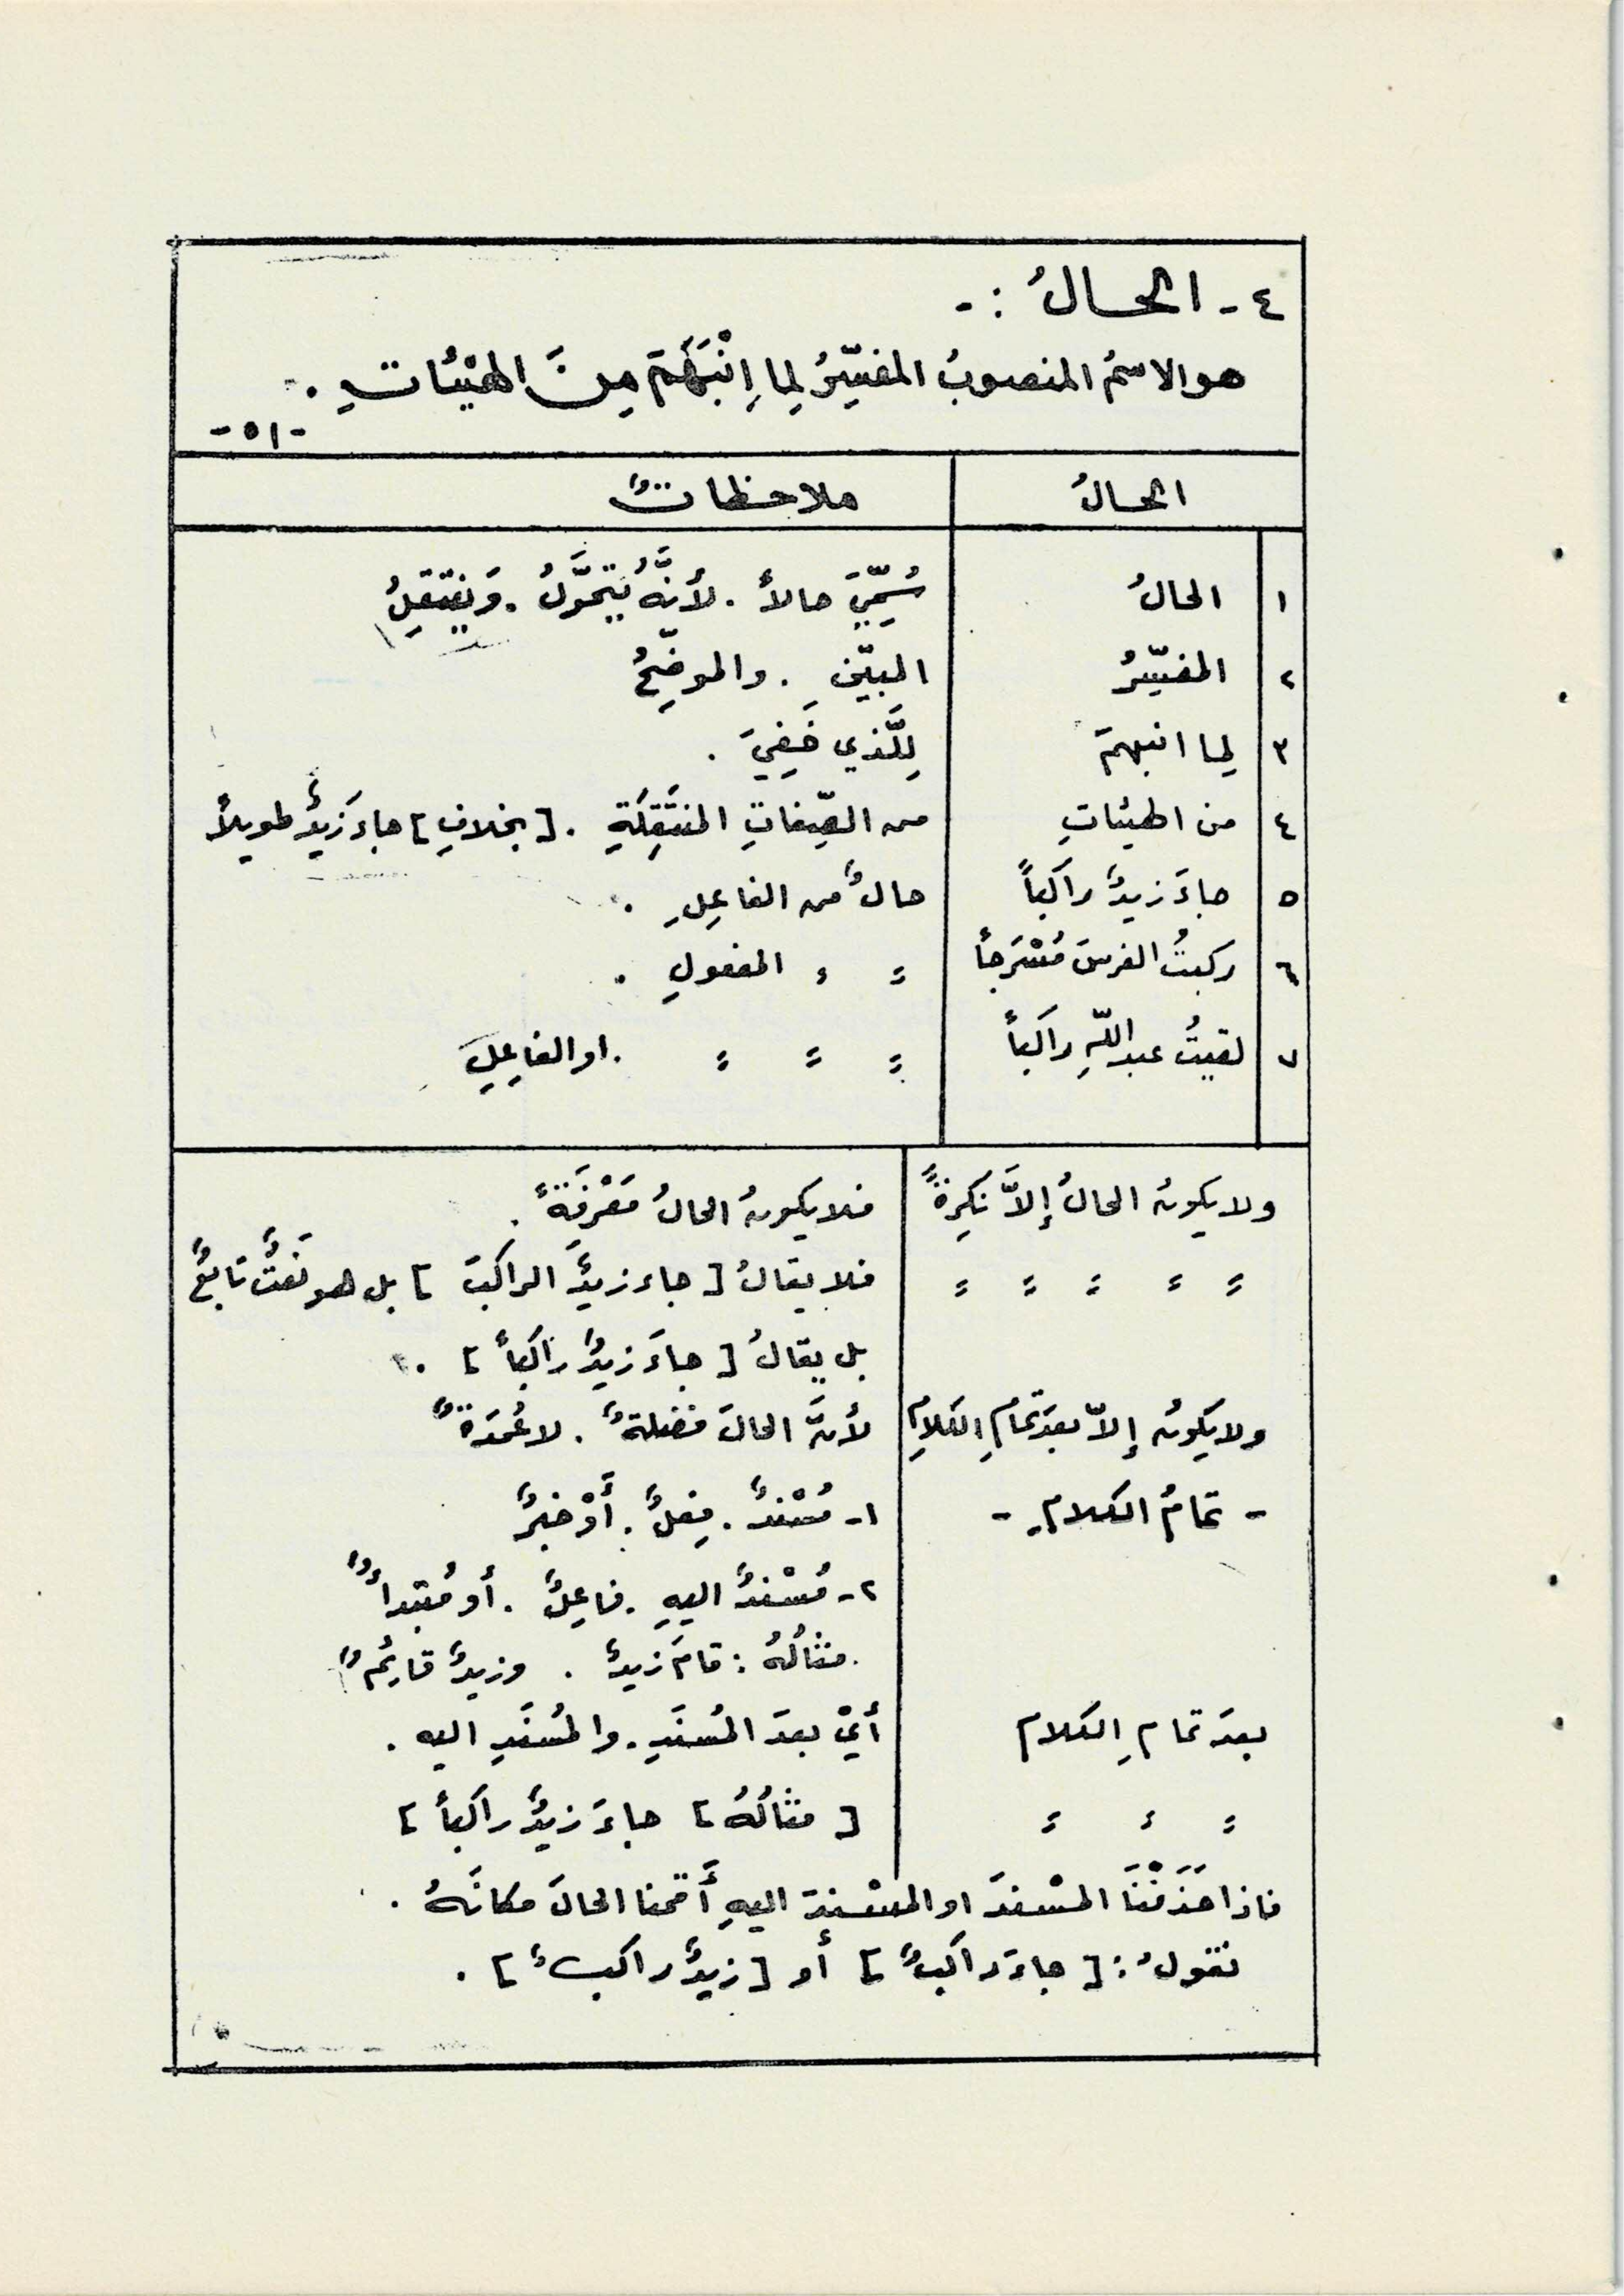 ٤ - الحالُ : -
هو الاسمُ المنصوبُ المفسِّرُ لِما اِنْبَهَمَ مِنَ الهَيْئاتِ .
- ٥١ -
الحالُ ملاحظاتٌ
١ الحالُ سُمِّيَ حالاً . لأنَّهُ يُتَحَوَّلُ . وَيَنتقِلُ
٢ المفسِّرُ المبيِّنِ . والموضِّحُ
٣ لِما انبهمَ لِلَّذي خَفِيَ .
٤ من الهيئاتِ من الصِّفاتِ المنتَقِلَةِ . [ بخلافِ ] جاءَ زَيدٌ طويلاً
٥ جاءَ زيدٌ راكباً حالٌ من الفاعِلِ .
٦ ركبتُ الفرسَ مُسْرَجاً = = المفعولِ .
٧ لقيتُ عبدَ اللّهِ راكباً = = = . او الفاعِلِ
ولا يكونُ الحالُ إلاَّ نَكِرةً فلا يكونُ الحالُ مَعْرِفَةً .
= = = = = فلا يقالُ [ جاء زيدٌ الراكبَ ] بل هو نَعتٌ تابعٌ
بل يقالُ [ جاءَ زيدٌ راكباً ] .
ولا يَكونُ إلاّ بعدَ تمامِ الكلامِ لأنَّ الحالَ فضلةٌ . لا عُمدَةٌ
- تمامُ الكلامِ - ١- مُسْندٌ . فِعلٌ . أَوْ خبرٌ
٢- مُسْندٌ اليهِ . فاعِلٌ . أو مُبتدأٌ
. مثالُهُ : قامَ زيدٌ . وزيدٌ قائِمٌ
بعدَ تمامِ الكلام أيْ بعدَ المُسنَدِ . والمُسنَدِ اليه .
= = = [ مثالُهُ ] جاءَ زيدٌ راكباً ]
فاذا حَذَفْنَا المسْندَ او المسْندَ اليهِ أَقمنا الحالَ مكانَهُ .
نقولُ : [ جاءَ راكبٌ ] أو [ زيدٌ راكبٌ ] .